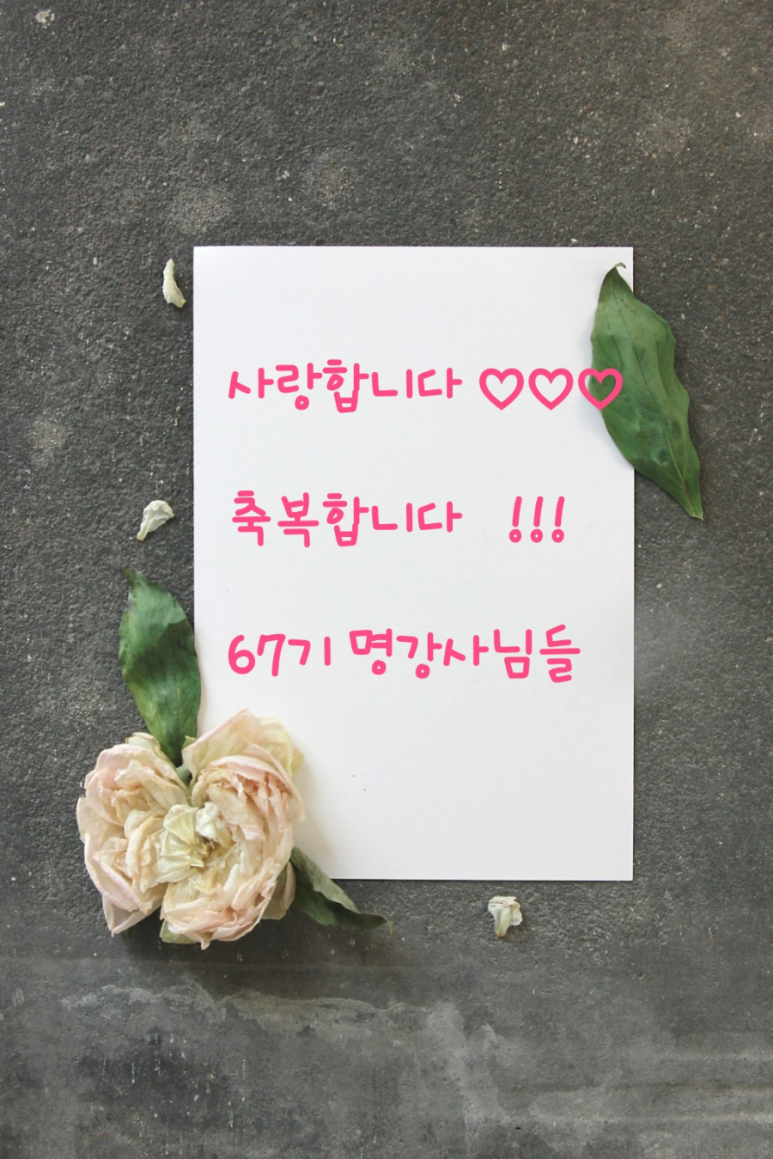 사랑합니다 ♡♡♡
축복합니다 !!!
67기 명강사님들